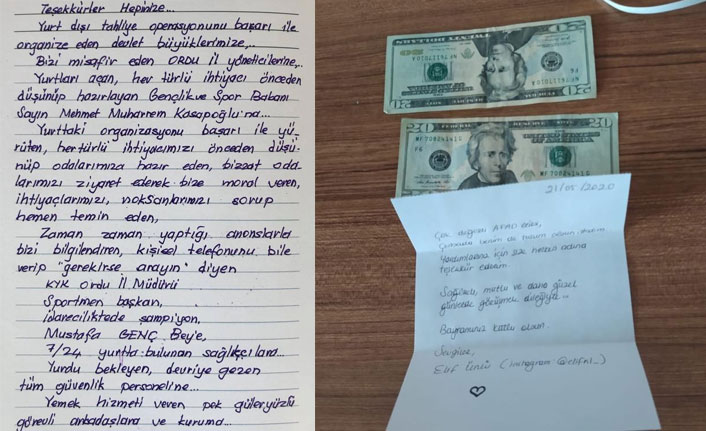 Teşekkürler Hepinize...
Yurt dışı tahliye operasyonunu başarı ile
organize eden devlet büyüklerimize,..
Bizi misafir eden ORDU il yöneticilerine,..
Yurtları açan, her türlü ihtiyacı önceden
düşünüp hazırlayan Gençlik ve Spor Babam
Sayın Mehmet Muharrem Kasapoğlu'na...
Yurttaki organizasyonu başarı ile yü-
rüten, her türlü ihtiyacımızı önceden düşü-
nüp odalarımıza hazır eden, bizzat oda-
larımızı ziyaret ederek bize moral veren,
ihtiyaçlarımızı, noksanlarımızı sorup
hemen temin eden,
Zaman zaman yaptığı anonslarla
bizi bilgilendiren, kişisel telefonunu bile
verip "gerekirse arayın" diyen
KYK Ordu İl Müdürü
Sportmen başkan,
idarecilikte de şampiyon,
Mustafa GENÇ Bey'e,
7/24 yurtta bulunan sağlıkçılara...
Yurdu bekleyen, devriye gezen
tüm güvenlik personeline...
Yemek hizmeti veren pek güleryüzlü
görevli arkadaşlara ve kuruma...
20
20
FEDERAL RESERVE
MF 70824141 G
MF 70824141 G
21/05/2020
Çok değerli AFAD ekibi,
Yardımlarınız için adına
teşekkür ederim
Sağlıklı, mutlu ve daha güzel
günlerde görüşmek dileğiyle...
Bayramınız kutlu olsun.
Sevgiler,
Elif Ünlü (instagram